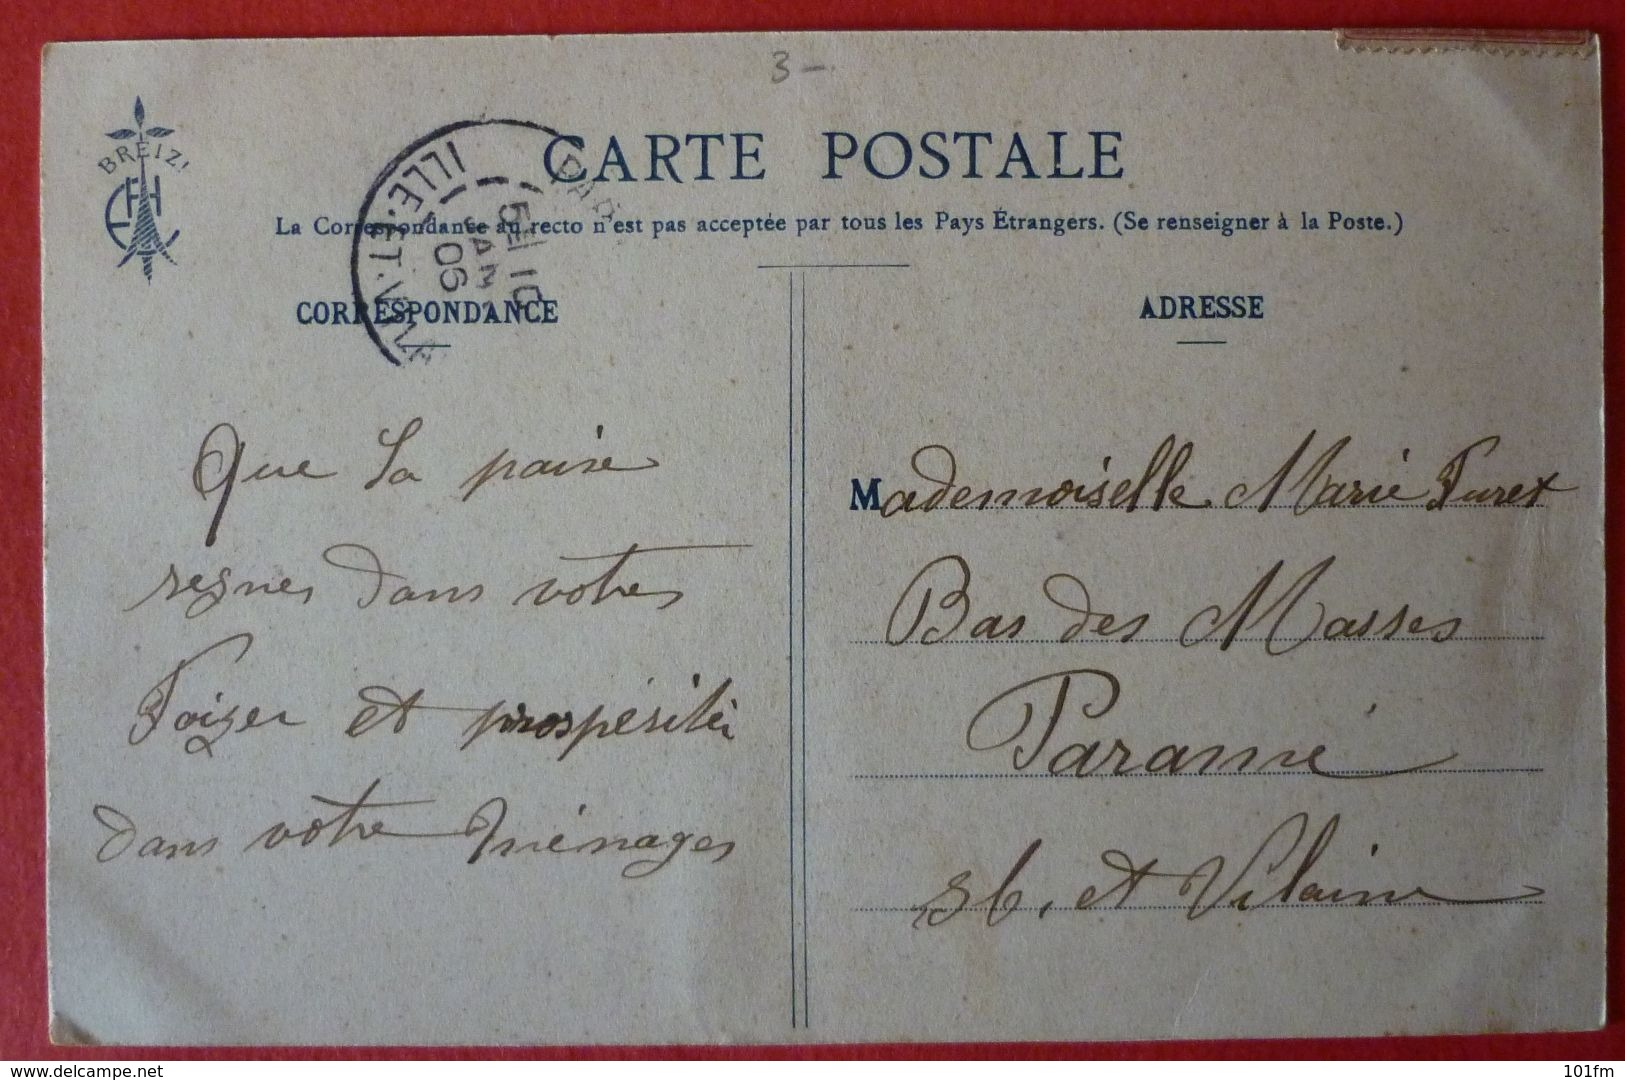 3 –
BREIZ!
EHA
CARTE POSTALE
La Correspondance au recto n'est pas acceptée par tous les Pays Étrangers. (Se renseigner à la Poste.)
PAR
ILLE-ET-VILNE
5E 10
JANV.
06
CORRESPONDANCE
Que la paixe
regnes dans votres
Foiger et prospéritér
dans votre ménages
ADRESSE
Mademoiselle Marie Furet
Bas des Masses
Paramé
Ile. et Vilaine
www.delcampe.net
101fm